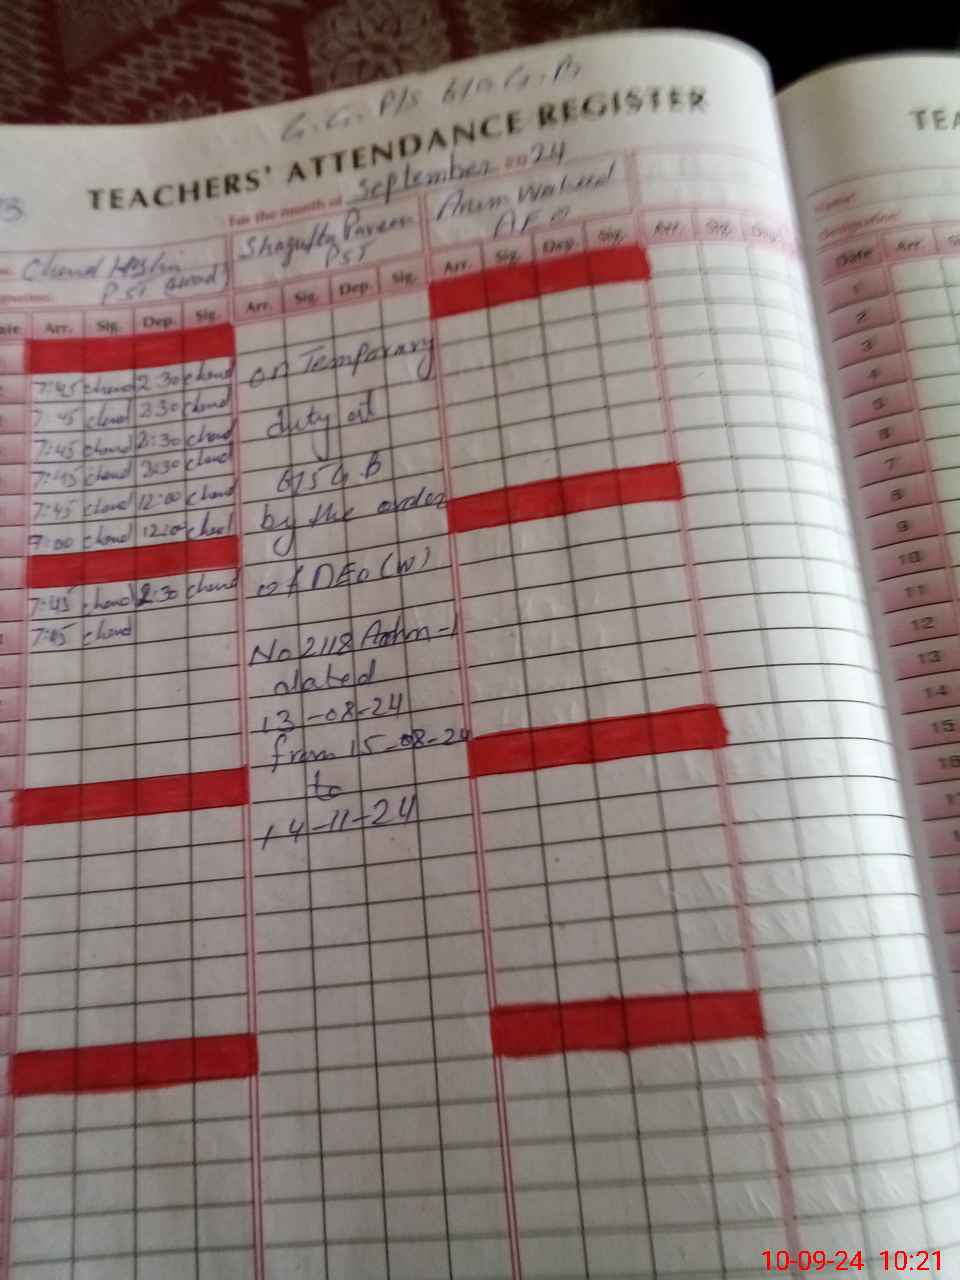 G.G. P/S 610 G.B
TEACHERS' ATTENDANCE REGISTER
TEA
For the month of September 2024
Chand
Shagufta Parveen
Anum Waleed
PST
PST
AEO
Arr. Sig. Dep. Sig.
Arr. Sig. Dep. Sig.
Arr. Sig. Dep. Sig.
Arr. Sig. Dep.
Date Arr.
7:45 chand 2:30 chand
7:45 chand 2:30 chand
7:45 chand 2:30 chand
7:45 chand 2:30 chand
7:45 chand 12:00 chand
7:00 chand 12:00 chand
7:45 chand 2:30 chand
7:45 chand
on Temporary
duty at
615 G.B
by the order
of DEO (W)
No 2118 Adm-1
dated
13-08-24
from 15-08-24
to
14-11-24
1
2
3
4
5
6
7
8
9
10
11
12
13
14
15
16
10-09-24 10:21